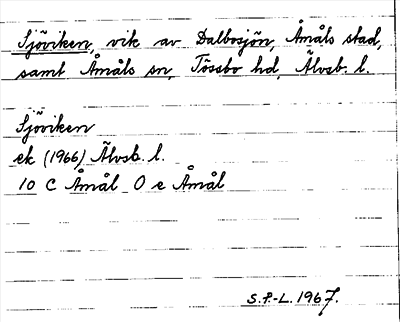 Sjöviken, vik av Dalbosjön, Åmåls stad,
samt Åmåls sn, Tössbo hd, Älvsb. l.
Sjöviken
ek (1966) Älvsb. l.
10 C Åmål O e Åmål
S.P.-L. 1967.